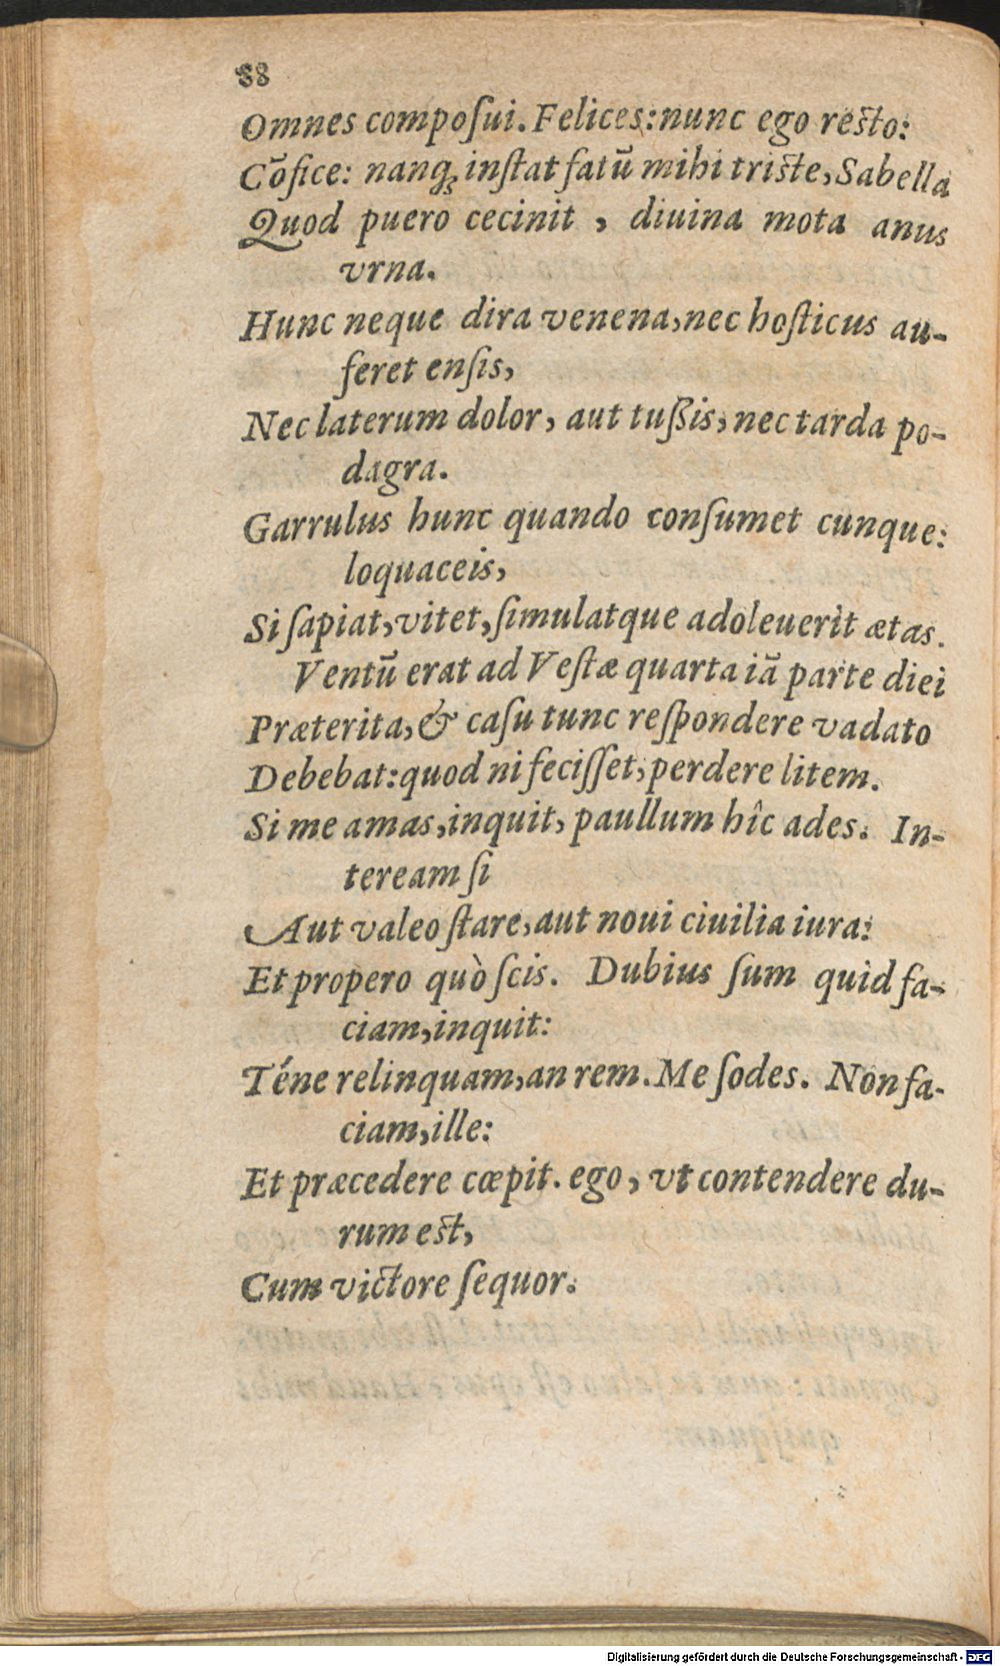 88
Omnes compoſui. Felices: nunc ego reſto:
Cōfice: nanq; inſtat fatū mihi triſte, Sabella
Quod puero cecinit, diuina mota anus
vrna.
Hunc neque dira venena, nec hoſticus au-
feret enſis,
Nec laterum dolor, aut tuſsis, nec tarda po-
dagra.
Garrulus hunc quando conſumet cunque:
loquaceis,
Si ſapiat, vitet, ſimulatque adoleuerit ætas.
Ventū erat ad Veſtæ quarta iā parte diei
Præterita, & caſu tunc reſpondere vadato
Debebat: quod ni feciſſet, perdere litem.
Si me amas, inquit, paullum hîc ades. In-
teream ſi
Aut valeo ſtare, aut noui ciuilia iura:
Et propero quò ſcis. Dubius ſum quid fa-
ciam, inquit:
Téne relinquam, an rem. Me ſodes. Non fa-
ciam, ille:
Et præcedere cœpit. ego, vt contendere du-
rum eſt,
Cum victore ſequor.
Digitalisierung gefördert durch die Deutsche Forschungsgemeinschaft - DFG